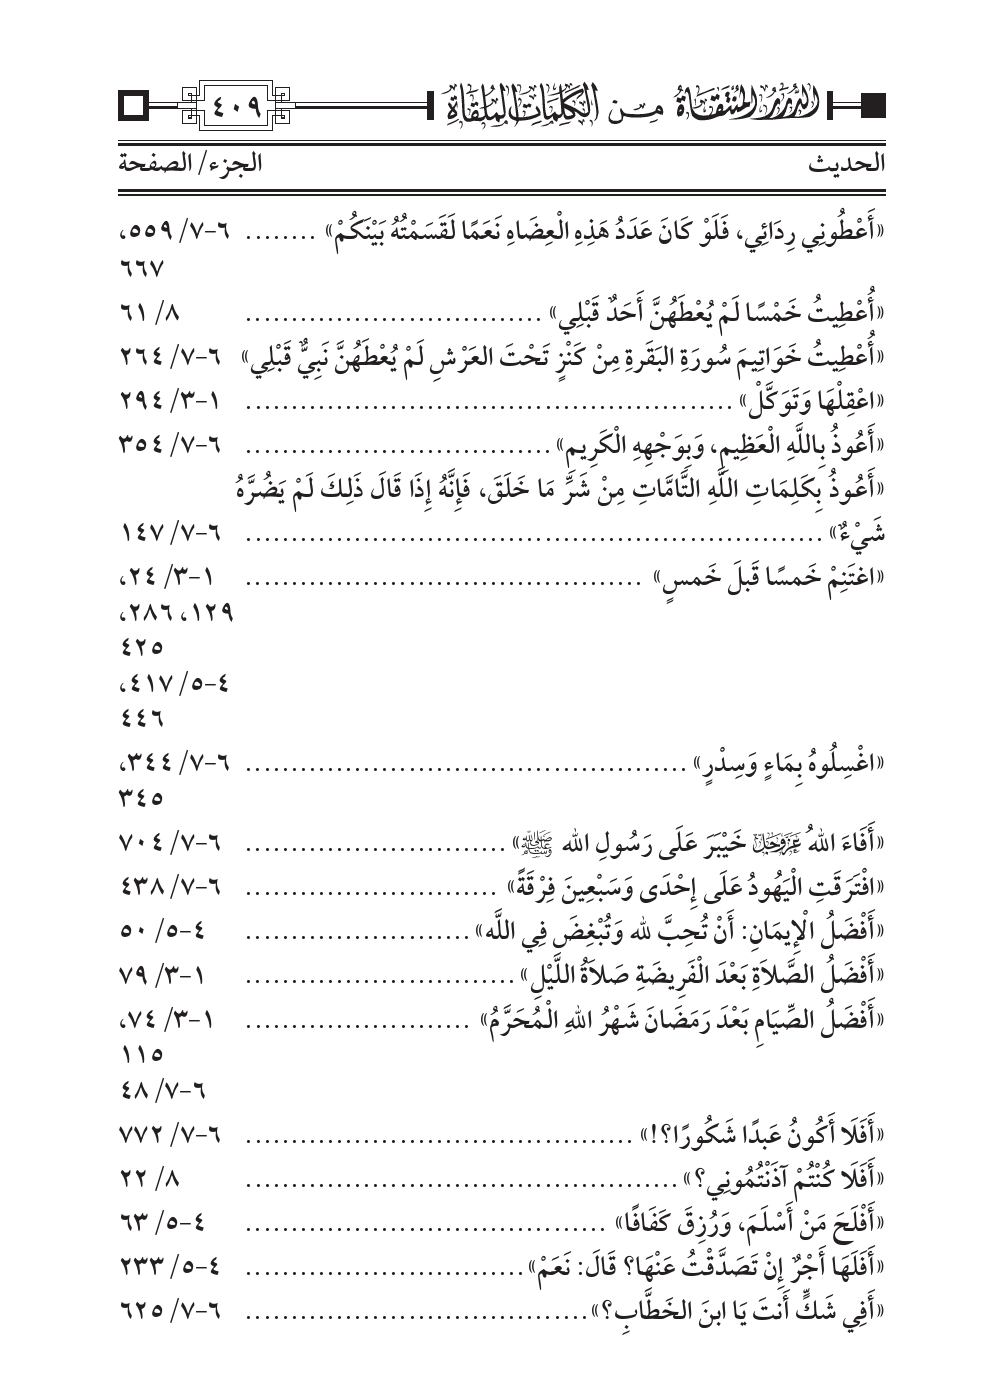 الدرر المنتقاة من الكلمات الملقاة ٤٠٩
الحديث الجزء/ الصفحة
«أَعْطُونِي رِدَائِي، فَلَوْ كَانَ عَدَدُ هَذِهِ الْعِضَاهِ نَعَمًا لَقَسَمْتُهُ بَيْنَكُمْ» ........ ٦-٧/ ٥٥٩،
٦٦٧
«أُعْطِيتُ خَمْسًا لَمْ يُعْطَهُنَّ أَحَدٌ قَبْلِي» ................................ ٨/ ٦١
«أُعْطِيتُ خَوَاتِيمَ سُورَةِ البَقَرةِ مِنْ كَنْزٍ تَحْتَ العَرْشِ لَمْ يُعْطَهُنَّ نَبِيٌّ قَبْلِي» ٦-٧/ ٢٦٤
«اعْقِلْهَا وَتَوَكَّلْ» ..................................................... ١-٣/ ٢٩٤
«أَعُوذُ بِاللَّهِ الْعَظِيمِ، وَبِوَجْهِهِ الْكَرِيمِ» ................................. ٦-٧/ ٣٥٤
«أَعُوذُ بِكَلِمَاتِ اللَّهِ التَّامَّاتِ مِنْ شَرِّ مَا خَلَقَ، فَإِنَّهُ إِذَا قَالَ ذَلِكَ لَمْ يَضُرَّهُ
شَيْءٌ» ............................................................... ٦-٧/ ١٤٧
«اغتَنِمْ خَمسًا قَبلَ خَمسٍ» ........................................... ١-٣/ ٢٤،
١٢٩، ٢٨٦،
٤٢٥
٤-٥/ ٤١٧،
٤٤٦
«اغْسِلُوهُ بِمَاءٍ وَسِدْرٍ» ................................................ ٦-٧/ ٣٤٤،
٣٤٥
«أَفَاءَ اللهُ عَزَّوَجَلَّ خَيْبَرَ عَلَى رَسُولِ الله ﷺ» ............................ ٦-٧/ ٧٠٤
«افْتَرَقَتِ الْيَهُودُ عَلَى إِحْدَى وَسَبْعِينَ فِرْقَةً» ........................... ٦-٧/ ٤٣٨
«أَفْضَلُ الْإِيمَانِ: أَنْ تُحِبَّ لله وَتُبْغِضَ فِي اللَّه» ......................... ٤-٥/ ٥٠
«أَفْضَلُ الصَّلاَةِ بَعْدَ الْفَرِيضَةِ صَلاَةُ اللَّيْلِ» .............................. ١-٣/ ٧٩
«أَفْضَلُ الصِّيَامِ بَعْدَ رَمَضَانَ شَهْرُ اللهِ الْمُحَرَّمُ» ........................ ١-٣/ ٧٤،
١١٥
٦-٧/ ٤٨
«أَفَلَا أَكُونُ عَبدًا شَكُورًا؟!» .......................................... ٦-٧/ ٧٧٢
«أَفَلَا كُنْتُمْ آذَنْتُمُونِي؟» ............................................... ٨/ ٢٢
«أَفْلَحَ مَنْ أَسْلَمَ، وَرُزِقَ كَفَافًا» ....................................... ٤-٥/ ٦٣
«أَفَلَهَا أَجْرٌ إِنْ تَصَدَّقْتُ عَنْهَا؟ قَالَ: نَعَمْ» .............................. ٤-٥/ ٢٣٣
«أَفِي شَكٍّ أَنتَ يَا ابنَ الخَطَّابِ؟» ..................................... ٦-٧/ ٦٢٥